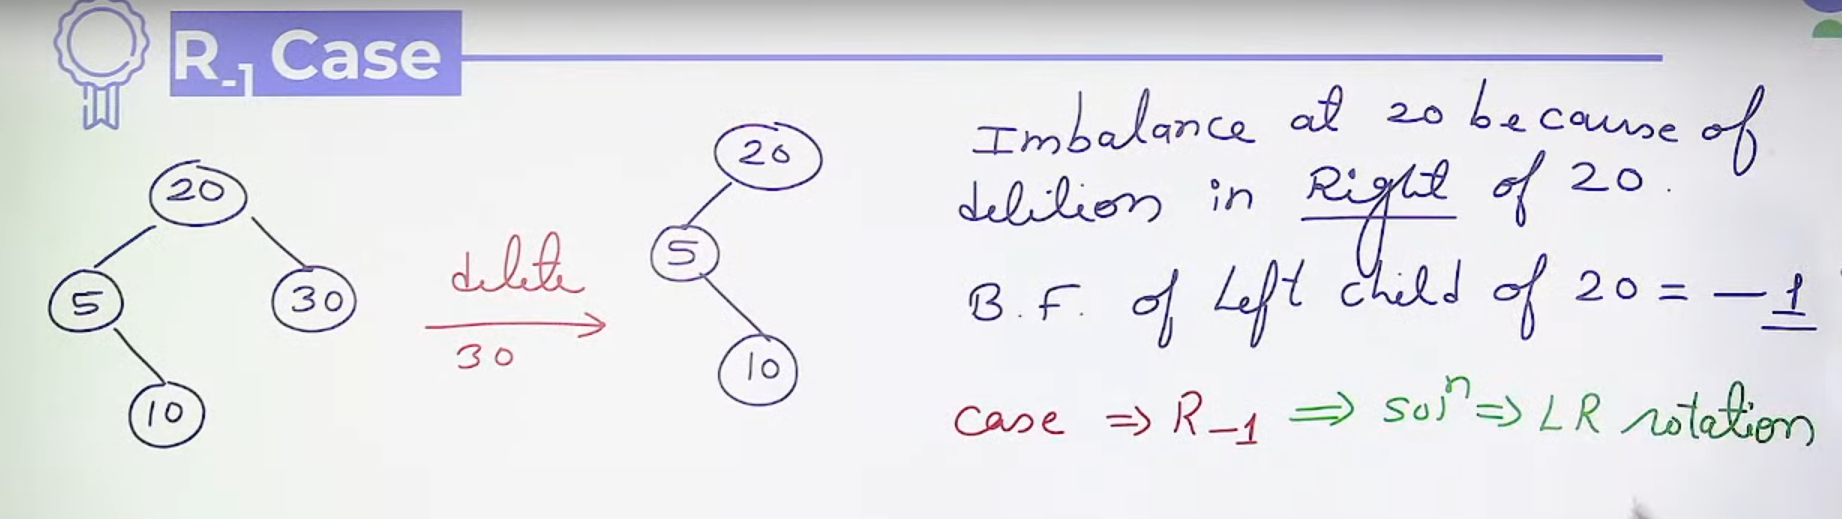 R-1 Case
20
5
30
10
delete
30
20
5
10
Imbalance at 20 because of
delition in Right of 20.
B.F. of Left child of 20 = -1
case => R-1 => solⁿ => LR rotation